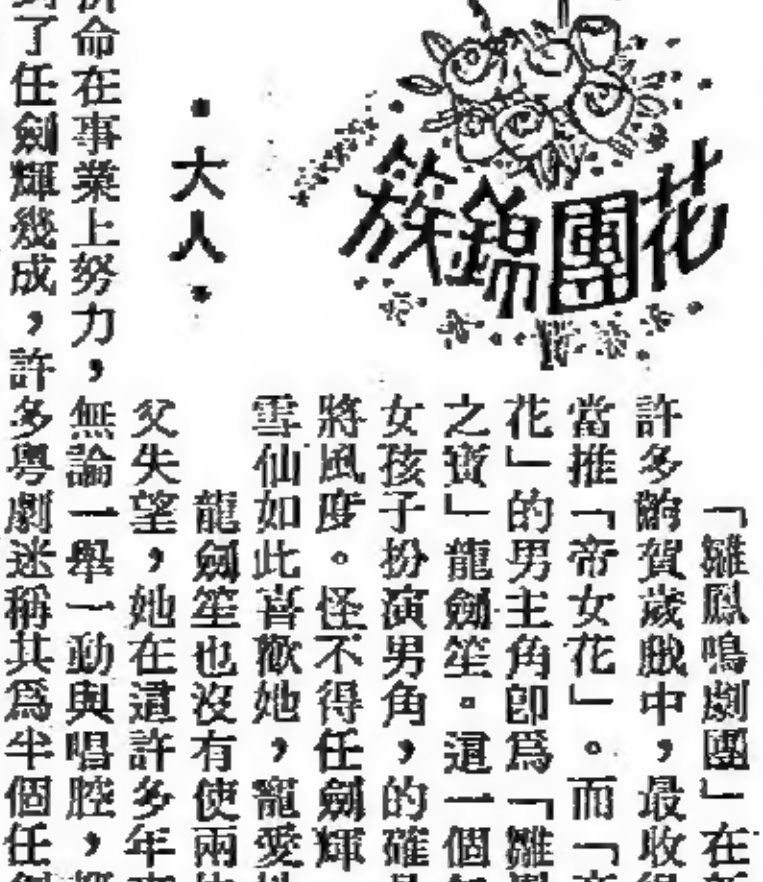 花團錦簇
•大人•
「雛鳳鳴劇團」在
許多齣賀歲戲中，最收得
當推「帝女花」。而「
花」的男主角即爲「雛鳳
之寶」龍劍笙。這一個
女孩子扮演男角，的確
將風度。怪不得任劍輝
雪仙如此喜歡她，寵愛
龍劍笙也沒有使兩
父失望，她在這許多年
命在事業上努力，無論一舉一動與唱腔，
了任劍輝幾成，許多粵劇迷稱其爲半個任